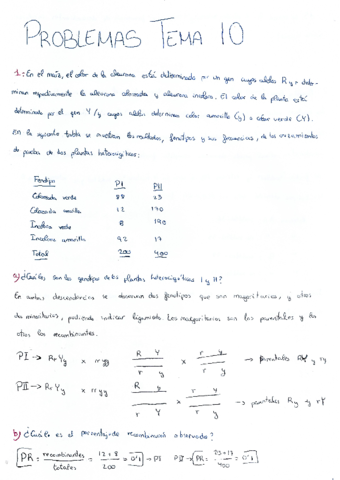 PROBLEMAS TEMA 10
1: En el maíz, el color de la aleurona está determinado por un gen cuyos alelos R y r deter-
minan respectivamente la aleurona coloreada y aleurona incolora. El color de la planta está
determinado por el gen Y/y cuyos alelos determinan color amarillo (y) o color verde (Y).
En la siguiente tabla se muestran los resultados, fenotipos y sus frecuencias, de los cruzamientos
de prueba de dos plantas heterocigóticas:
Fenotipo PI PII
Coloreada verde 88 23
Coloreada amarilla 12 170
Incolora verde 8 190
Incolora amarilla 92 17
Total 200 400
a) ¿Cuáles son los genotipos de las plantas heterocigóticas I y II?
En ambas descendencias se observan dos fenotipos que son mayoritarios, y otros
dos minoritarios, pudiendo indicar ligamiento. Los mayoritarios son los parentales y los
otros los recombinantes.
PI → Rr Yy x rr yy R Y / r y x r y / r y → parentales RY y ry
PII → Rr Yy x rr yy R y / r Y x r y / r y → parentales Ry y rY
b) ¿Cuál es el porcentaje de recombinación observado?
PR = recombinantes / totales = 12 + 8 / 200 = 0'1 → PI PII → PR = 23 + 17 / 400 = 0'1